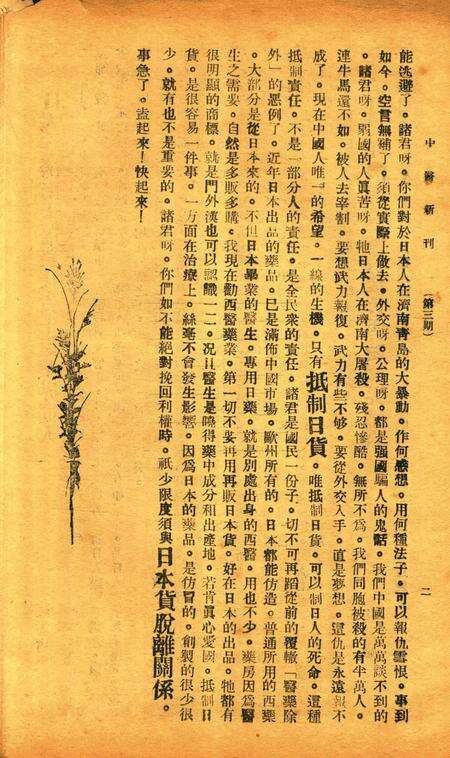 中醫新刊
(第三期)
二
能逃避了。諸君呀。你們對於日本人在濟南青島的大暴動。作何感想。用何種法子。可以報仇雪恨。事到
如今。空言無補了。須從實際上做去。外交呀。公理呀。都是强國騙人的鬼話。我們中國是萬萬談不到的
。諸君呀。弱國的人眞苦呀。牠日本人在濟南大屠殺。殘忍慘酷。無所不爲。我們同胞被殺的有半萬人。
連牛馬還不如。被人去宰割。要想武力報復。武力有些不够。要從外交入手。直是夢想。這仇是永遠報不
成了。現在中國人唯一的希望。一線的生機。只有抵制日貨。唯抵制日貨。可以制日人的死命。這種
抵制責任。不是一部分人的責任。是全民衆的責任。諸君是國民一份子。切不可再蹈從前的覆轍「醫藥除
外」的惡例了。近年日本出品的藥品。已是滿佈中國市場。歐州所有的。日本都能仿造。普通所用的西藥
。大部分是從日本來的。不但日本畢業的醫生。專用日藥。就是別處出身的西醫。用也不少。藥房因爲醫
生之需要。自然是多販多購。我現在勸西醫藥業。第一切不要再用再販日本貨。好在日本的出品。牠都有
很明顯的商標。就是門外漢也可以認識一二。况且醫生是曉得藥中成分和出產地。若肯眞心愛國。抵制日
貨。是很容易一件事。一方面在治療上。絲毫不會發生影響。因爲日本的藥品。是仿冒的。創製的很少很
少。就有也不是重要的。諸君呀。你們如不能絕對挽回利權時。祇少限度須與日本貨脫離關係。
事急了。盍起來！快起來！